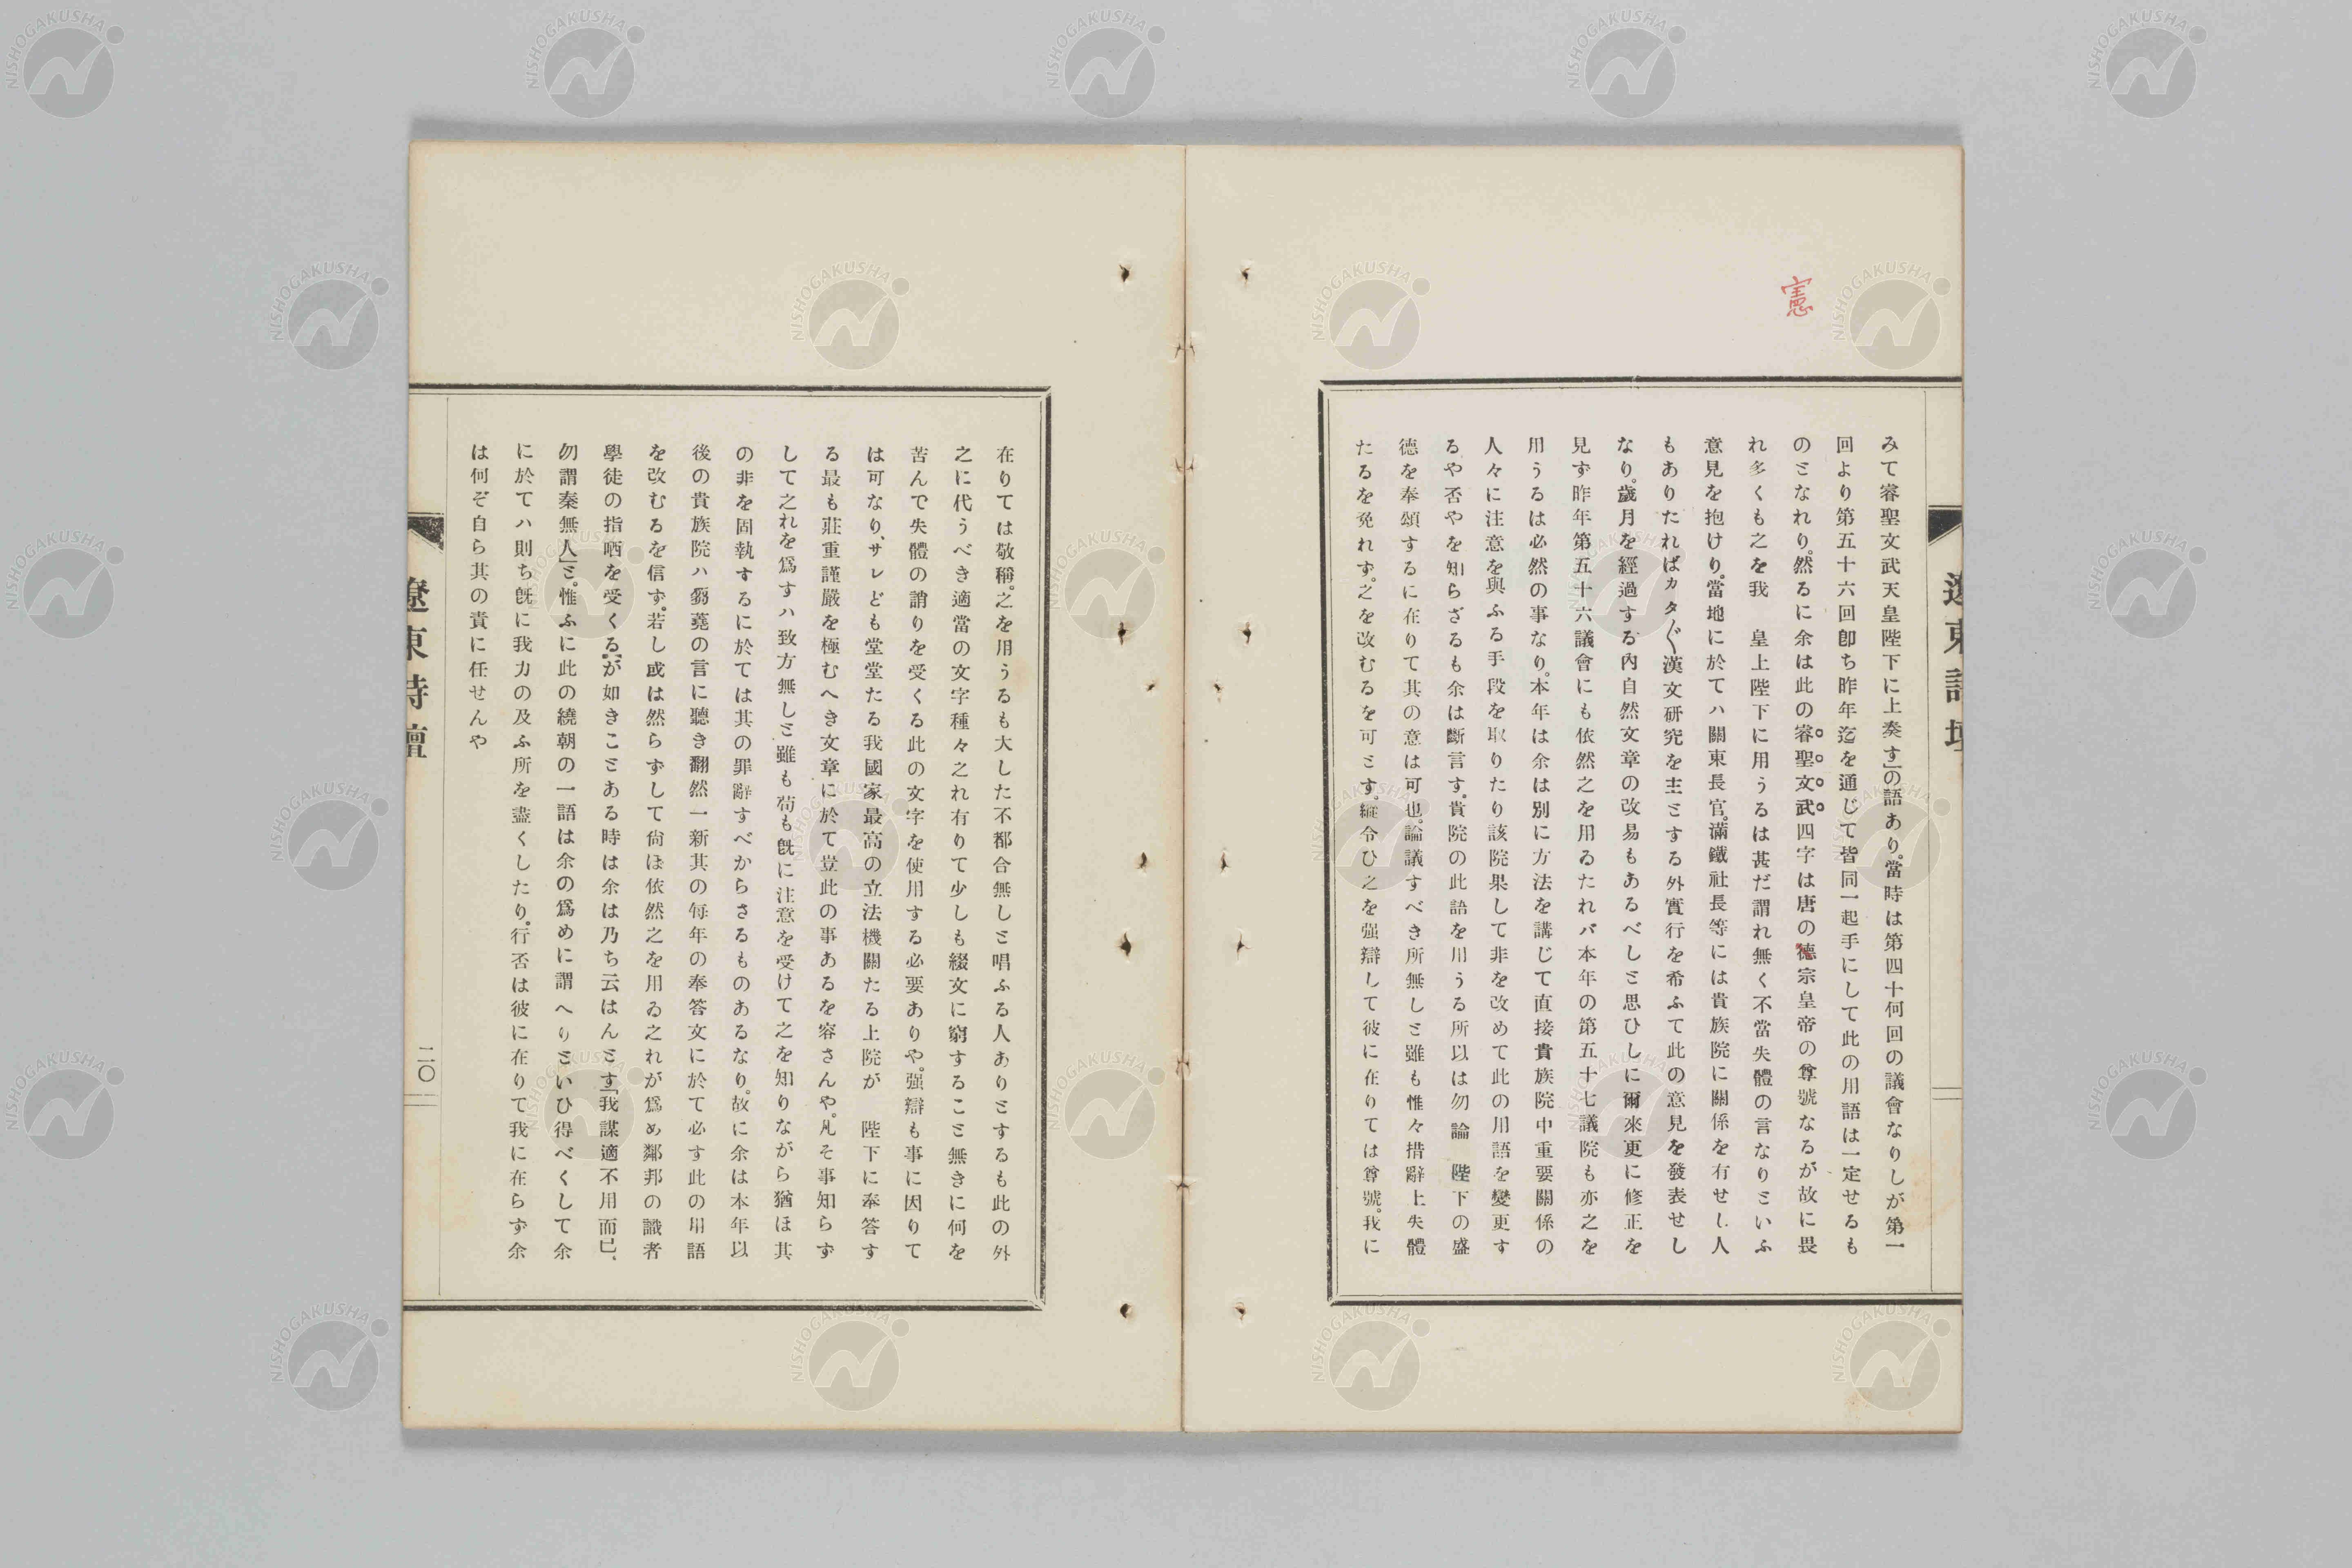 憲
みて睿聖文武天皇陛下に上奏す」の語あり。當時は第四十何回の議會なりしが第一
回より第五十六回卽ち昨年迄を通じて皆同一起手にして此の用語は一定せるも
のとなれり。然るに余は此の睿聖文武四字は唐の德宗皇帝の尊號なるが故に畏
れ多くも之を我　皇上陛下に用うるは甚だ謂れ無く不當失體の言なりといふ
意見を抱けり。當地に於てハ關東長官。滿鐵社長等には貴族院に關係を有せし人
もありたればカタ〴〵漢文研究を主とする外實行を希ふて此の意見を發表せし
なり。歲月を經過する內自然文章の改易もあるべしと思ひしに爾來更に修正を
見ず昨年第五十六議會にも依然之を用ゐたれバ本年の第五十七議院も亦之を
用うるは必然の事なり。本年は余は別に方法を講じて直接貴族院中重要關係の
人々に注意を與ふる手段を取りたり該院果して非を改めて此の用語を變更す
るや否やを知らざるも余は斷言す。貴院の此語を用うる所以は勿論　陛下の盛
德を奉頌するに在りて其の意は可也。論議すべき所無しと雖も惟々措辭上失體
たるを免れず。之を改むるを可とす。縱令ひ之を强辯して彼に在りては尊號。我に
遼東詩壇
在りては敬稱。之を用うるも大した不都合無しと唱ふる人ありとするも此の外
之に代うべき適當の文字種々之れ有りて少しも綴文に窮すること無きに何を
苦んで失體の誚りを受くる此の文字を使用する必要ありや。强辯も事に因りて
は可なり、サレども堂堂たる我國家最高の立法機關たる上院が　陛下に奉答す
る最も莊重謹嚴を極むへき文章に於て豈此の事あるを容さんや。凡そ事知らず
して之れを爲すハ致方無しと雖も苟も旣に注意を受けて之を知りながら猶ほ其
の非を固執するに於ては其の罪辭すべからさるものあるなり。故に余は本年以
後の貴族院ハ芻蕘の言に聽き翻然一新其の每年の奉答文に於て必す此の用語
を改むるを信ず。若し或は然らずして尙ほ依然之を用ゐ之れが爲め鄰邦の識者
學徒の指哂を受くるが如きことある時は余は乃ち云はんとす「我謀適不用而已、
勿謂秦無人」と。惟ふに此の繞朝の一語は余の爲めに謂へりといひ得べくして余
に於てハ則ち旣に我力の及ふ所を盡くしたり。行否は彼に在りて我に在らず余
は何ぞ自ら其の責に任せんや
遼東詩壇
二〇